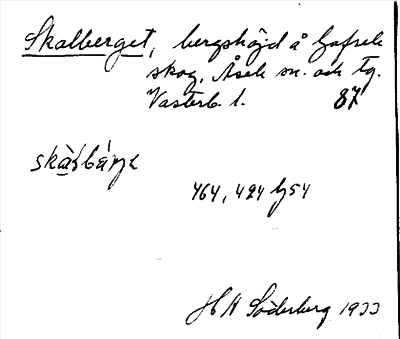 Skalberget, bergshöjd å Gafsele
skog, Åsele sn. och tg.
Västerb. l. 87
464, 424 Gg54
H A Söderberg 1933